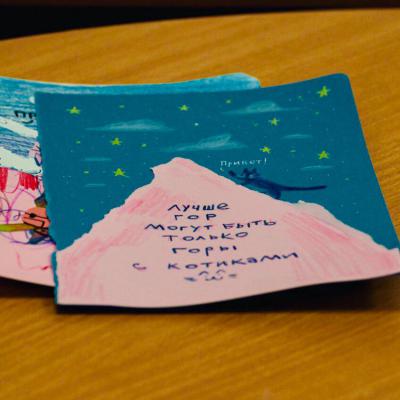 Привет!
ЛУЧШЕ
ГОР
МОГУТ БЫТЬ
ТОЛЬКО
ГОРЫ
С КОТИКАМИ